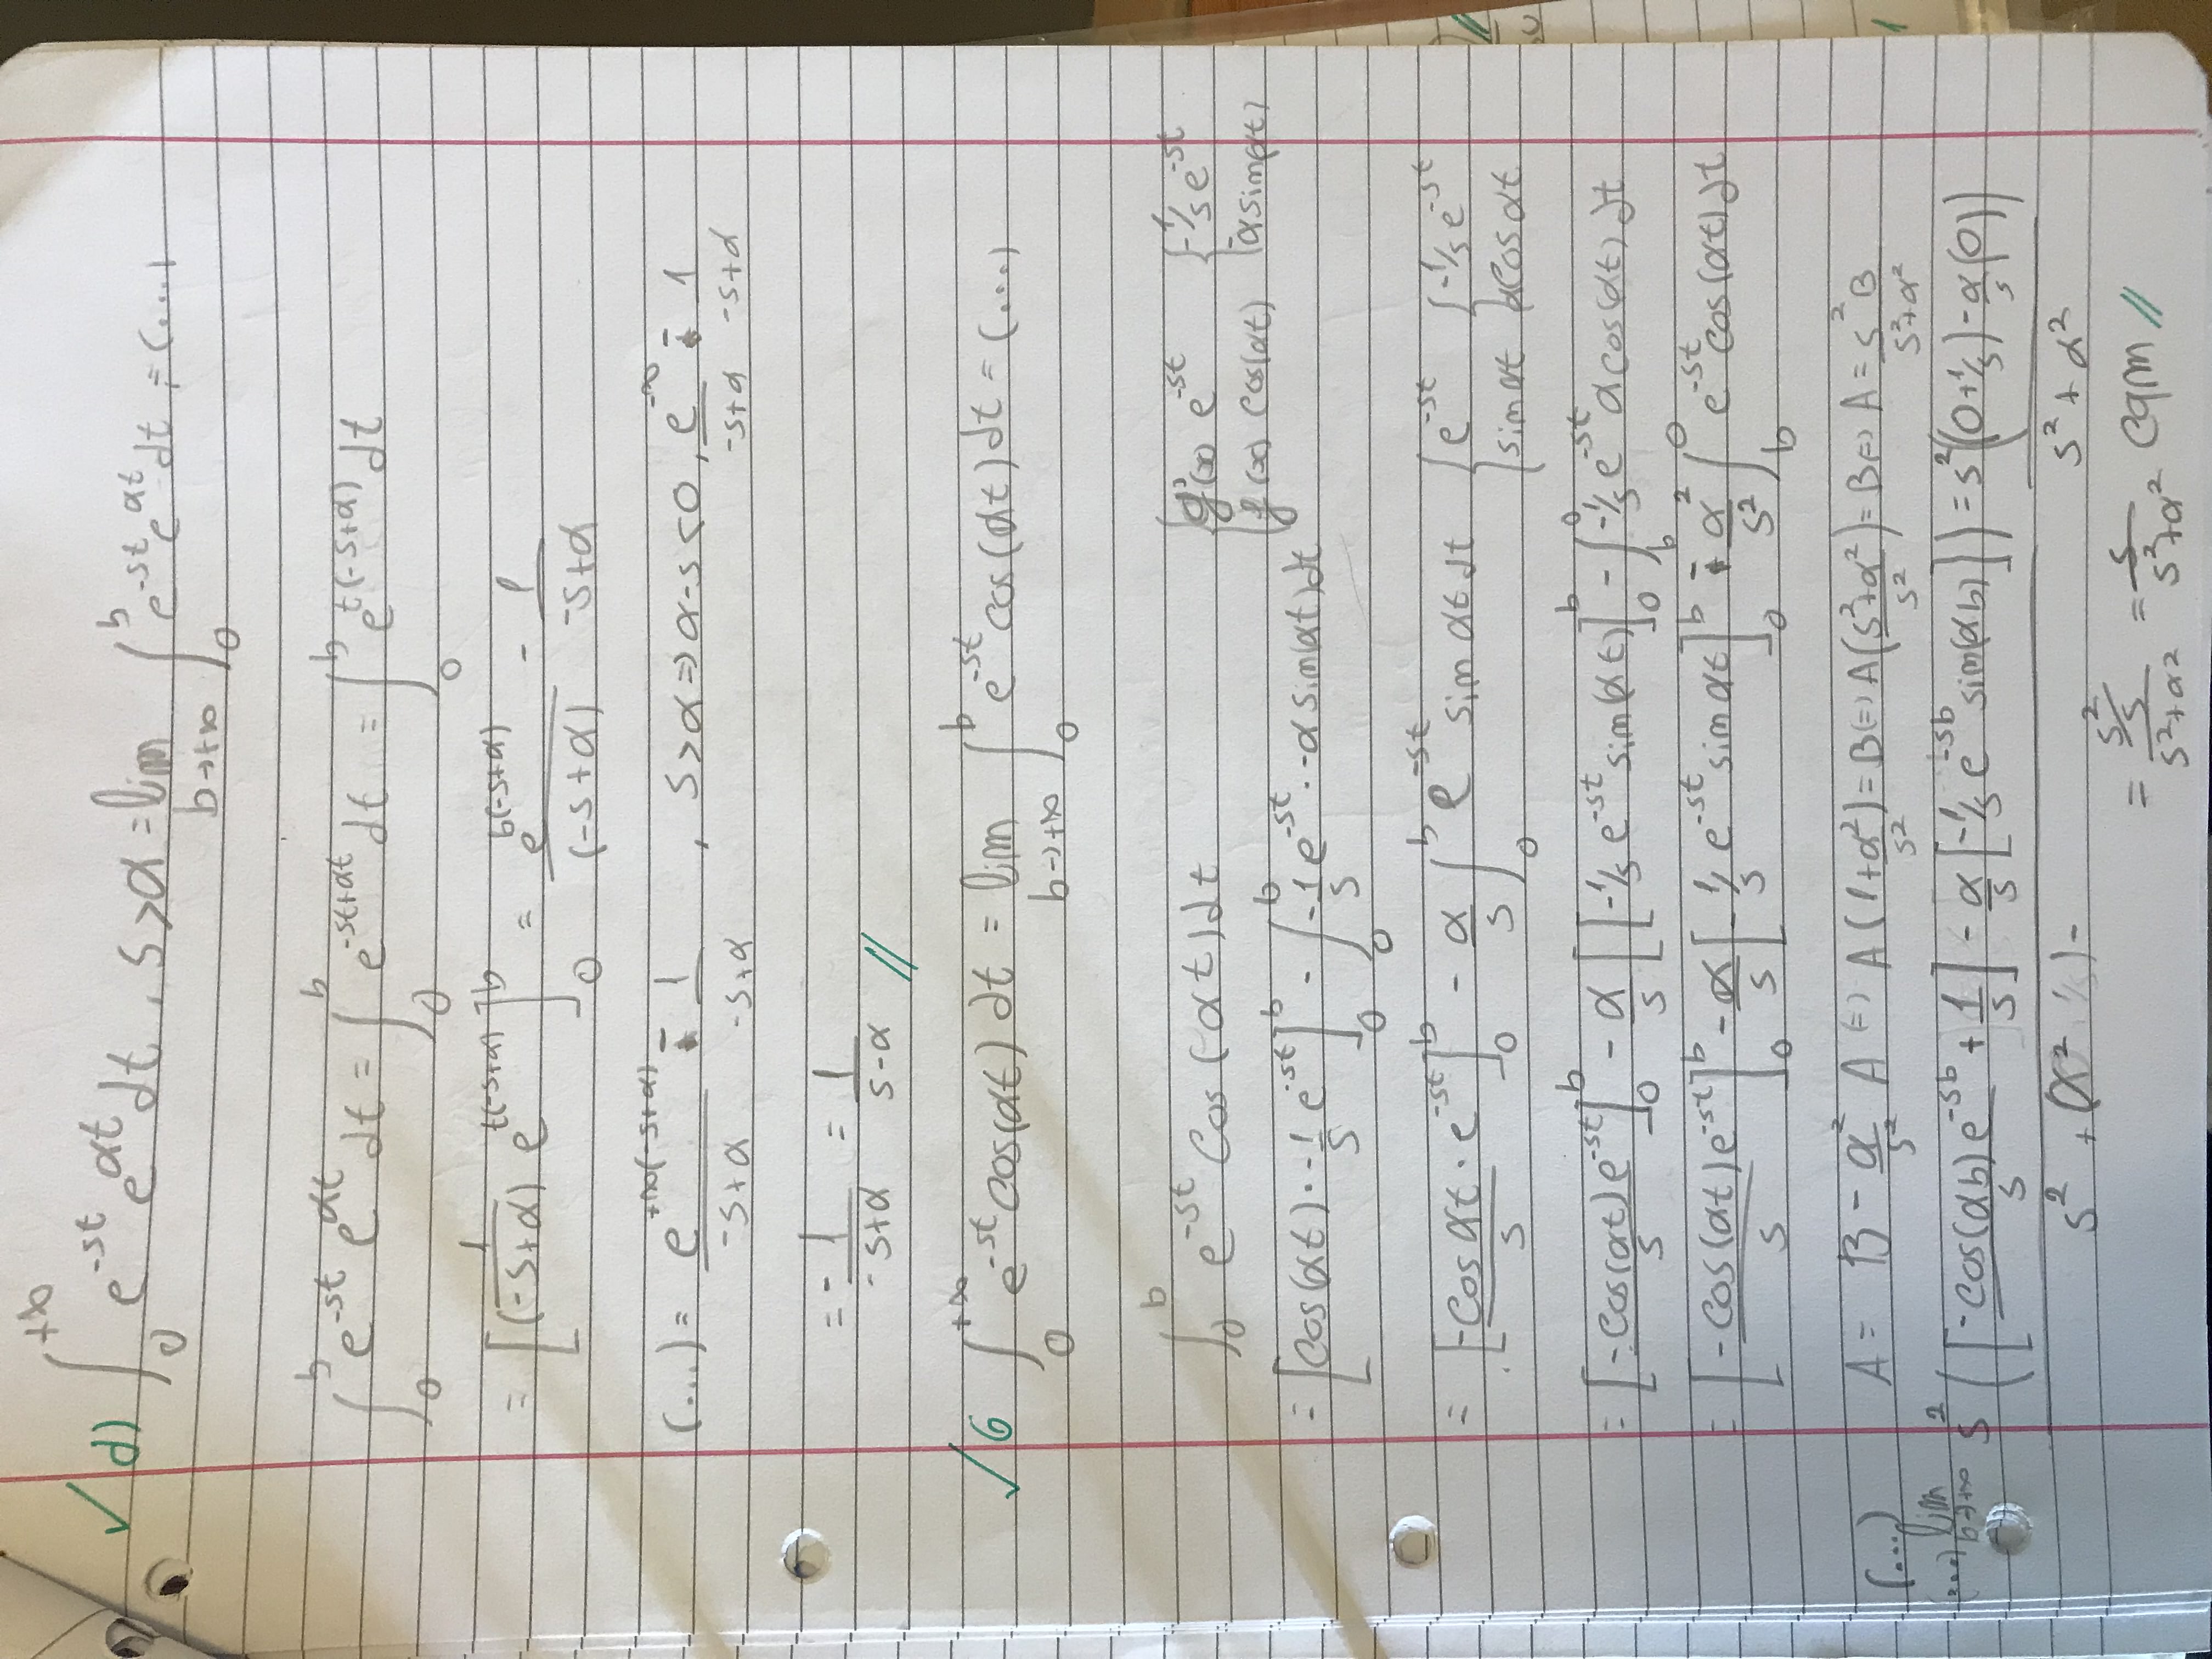 ✓ d) ∫₀^{+∞} e^{-st} e^{αt} dt , s>α = lim_{b→+∞} ∫₀^b e^{-st} e^{αt} dt = (....)
∫₀^b e^{-st} e^{αt} dt = ∫₀^b e^{-st+αt} dt = ∫₀^b e^{t(-s+α)} dt
= [1/(-s+α) e^{t(-s+α)}]₀^b = e^{b(-s+α)}/(-s+α) - 1/(-s+α)
(....) = e^{+∞(-s+α)}/(-s+α) - 1/(-s+α) , s>α ⇒ α-s<0 , e^{-∞}/(-s+α) - 1/(-s+α)
= - 1/(-s+α) = 1/(s-α) //
✓ 6 ∫₀^{+∞} e^{-st} cos(αt) dt = lim_{b→+∞} ∫₀^b e^{-st} cos(αt) dt = (....)
∫₀^b e^{-st} cos(αt) dt { g'(x) e^{-st} { -1/s e^{-st}
{ f(x) cos(αt) { -α sim(αt)
= [cos(αt) · -1/s e^{-st}]₀^b - ∫₀^b -1/s e^{-st} · -α sim(αt) dt
= [-cos αt · e^{-st}/s]₀^b - α/s ∫₀^b e^{-st} sim αt dt { e^{-st} { -1/s e^{-st}
{ sim αt { α cos αt
= [-cos(αt) e^{-st}/s]₀^b - α/s [[-1/s e^{-st} sim(αt)]₀^b - ∫_b^0 -1/s e^{-st} α cos(αt) dt
= [-cos(αt) e^{-st}/s]₀^b - α/s [-1/s e^{-st} sim αt]₀^b - α²/s² ∫_b^0 e^{-st} cos(αt) dt
(....) A = B - α²/s² A ⇔ A(1+α²/s²) = B ⇔ A((s²+α²)/s²) = B ⇔ A = s²B/(s²+α²)
(....) lim_{b→+∞} s²([-cos(αb) e^{-sb}/s + 1/s] - α/s [-1/s e^{-sb} sim(αb)])/(s² + α²) = s²((0+1/s) - α/s (0))/(s²+α²)
= (s²/s)/(s²+α²) = s/(s²+α²) cqm //